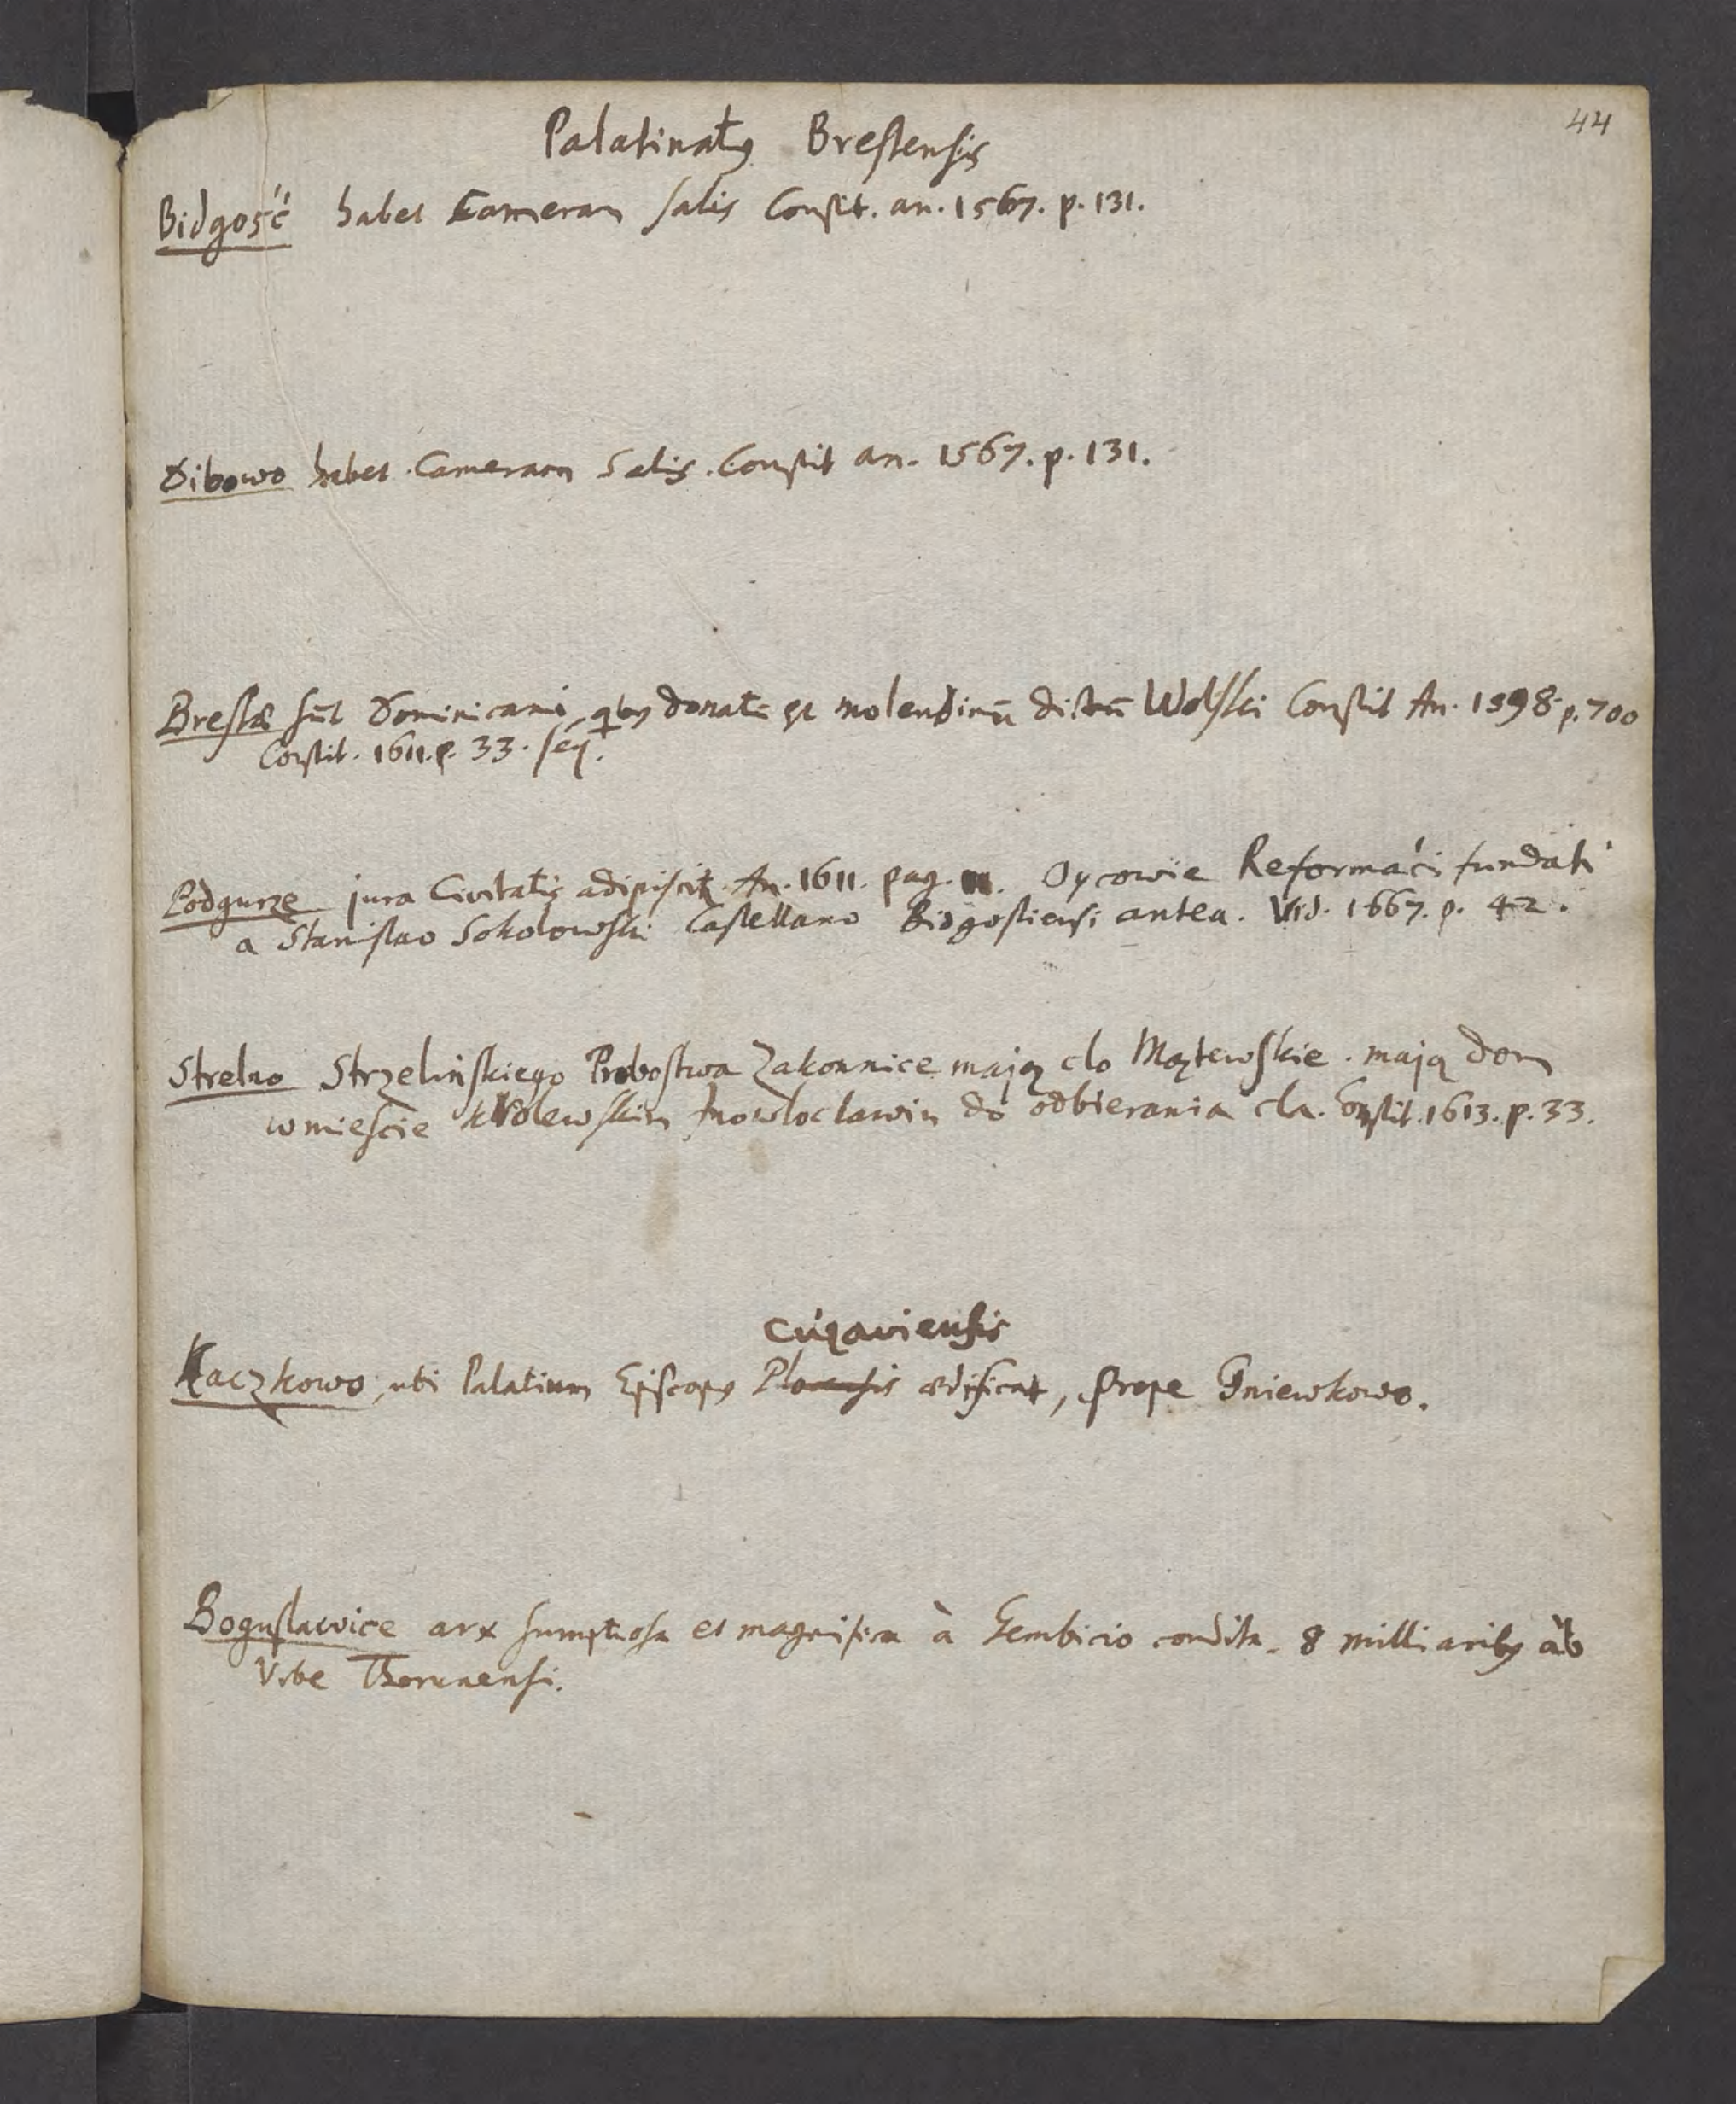 44
Palatinatus Brestensis
Bidgość habet Cameram salis Constit. an. 1567. p. 131.
Dibowo habet Cameram Salis. Constit an. 1567. p. 131.
Brestæ sūt Dominicani, qbus donatū est molendinū dictū Wolski Constit An. 1598. p. 700
Constit. 1611. p. 33. seq.
Podgurze jura Civitatis adipiscit. An. 1611. pag. Oycowie Reformaći fundati
a Stanislao Sokolowski Castellano Bidgostiensi antea. Vid. 1667. p. 42.
Strelno Strzelińskiego Probostwa Zakonnice mają clo Mątewskie. mają dom
w miescie Krolewskim Inowloclawiu do odbierania cla. Constit. 1613. p. 33.
Cujaviensis
Kaczkowo, ubi Palatium Episcopus Plocensis ædificat, prope Gniewkowo.
Boguslawice arx sumptuosa et magnifica à Gembicio condita. 8 milliaribus ab
Urbe Thorunensi.